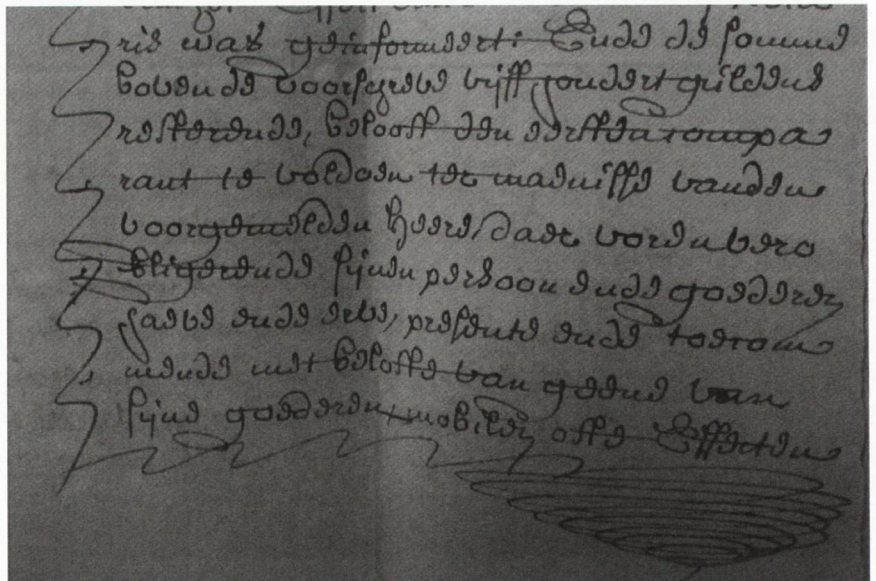 ris was geinformeert: Ende de somme
boven de voorschreve vijff hondert guldens
resterende, belooft den eersten compa
rant te voldoen ter maenisse vanden
voorgemelden heere, daer voren vero
bligerende sijnen persoon ende goederen
have ende erve, presente ende toecom
mende met beloffte van geene van
sijne goederen, mobilen offte Effecten